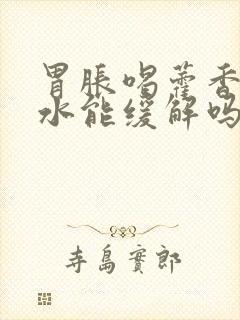 胃胀喝藿香
水能缓解吗
寺島實郎